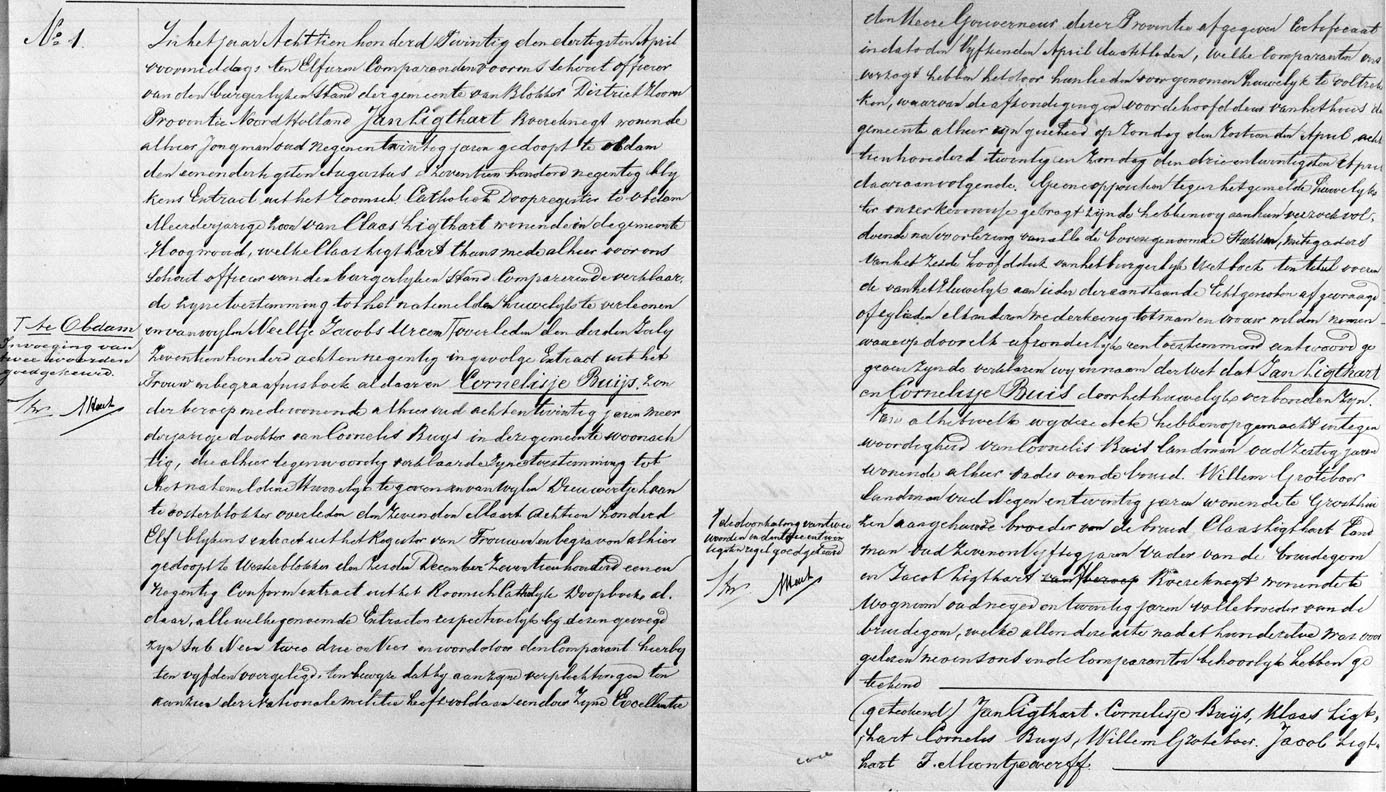 No 1.
In het jaar Achttien honderd Twintig den dertigsten April
voormiddags ten Elf uren Compareerden voor ons Schout officier
van den burgerlyken Stand der gemeente van Blokker District Hoorn
Provintie Noord Holland Jan Ligthart Boereknegt wonende
alhier Jongman oud negenentwintig jaren gedoopt te obdam
den eenendertigsten Augustus Zeventien honderd negentig bly
kens Extract uit het roomsch Catholiek Doopregister te obdam
Meerderjarige Zoon van Claas Ligthart wonende in de gemeente
Hoogwoud, welke Claas Ligthart thans mede alhier voor ons
Schout officier van den burgerlyken Stand Comparerende verklaar,
de zyne toestemming tot het natemelden huwelyk te verleenen
en van wylen Neeltje Jacobs Ureem T overleden den derden July
Zeventien honderd acht en negentig ingevolge Extract uit het
Trouw en begraafnisboek aldaar en Cornelisje Buijs, Zon
der beroep mede wonende alhier oud achtentwintig jaren meer
derjarige dochter van Cornelis Buys in deze gemeente woonach
tig, die alhier tegenwoordig verklaarde zyne toestemming tot
het natemelden Huwelyk te geven en van wylen Dieuwertje Haan
te oosterblokker overleden den Zevenden Maart Achttien honderd
Elf blykens extract uit het Register van Trouwen en begraven alhier
gedoopt te Westerblokker den Zesden December Zeventienhonderd een en
Negentig Conform extract uit het Roomsch Catholyk Doopboek al,
daar, alle welke genoemde Extracten respectivelyk by dezen gevoegd
zyn Sub Neen twee drie en Vier en word door den Comparant hierby
ten vyfden overgelegd, ten bewyze dat hy aan zyne verplichtingen ten
aanzien der Nationale militie heeft voldaan een door Zyne Excellentie
T te Obdam
Invoeging van
twee woorden
goedgekeurd.
den Heere Gouverneur dezer Provintie afgegeven Certificaat
in dato den Vyftienden April laatstleden, welke comparanten ons
verzogt hebben het door hun lieden voorgenomen huwelyk te voltrek
ken, waarvan de afkondigingen voor de hoofddeur van het huis der
gemeente alhier zyn geschied op Zondag den Zestienden April acht
tienhonderd twintig en Zondag den drieentwintigsten April
daaraanvolgende. Geene oppositien tegen het gemelde huwelyk
ter onzer kennisse gebragt zynde hebben wy aan hun verzoek vol,
doende na voorlezing van alle de bovengenoemde Stukken, mitsgaders
van het Zesde hoofdstuk van het burgerlyk Wetboek ten titul voeren
de van het Huwelyk aan ieder der aanstaande Echtgenoten afgevraagd
of zylieden elkanderen wederkeerig tot man en vrouw wilden nemen
waarop door elk afzonderlyk een toestemmend antwoord ge
geven zynde verklaren wy in naam der wet dat Jan Ligthart
en Cornelisje Buis door het huwelyk verbonden zyn.
Van al hetwelk wy deze Acte hebben opgemaakt in tegen
woordigheid van Cornelis Buis landman oud Zestig jaren
wonende alhier vader van de bruid. Willem Groteboer
landman oud Negen en twintig jaren wonende te Grosthui
zen aangehuwde broeder van de bruid Claas Ligthart Land
man oud Zevenenvyftig jaren vader van de bruidegom
en Jacob Ligthart Boereknegt wonende te
Wognum oud negen en twintig jaren volle broeder van de
bruidegom, welke allen deze acte nadat hun dezelve was voor
gelezen nevens ons en de Comparanten behoorlyk hebben ge
tekend
(getekend) Jan Ligthart. Cornelisje Buijs, Klaas Ligt,
hart Cornelis Buys, Willem Groteboer. Jacob Ligt
hart J. Muntjewerff.
T de doorhaling van twee
woorden in den drie en twin
tigsten regel goedgekeurd